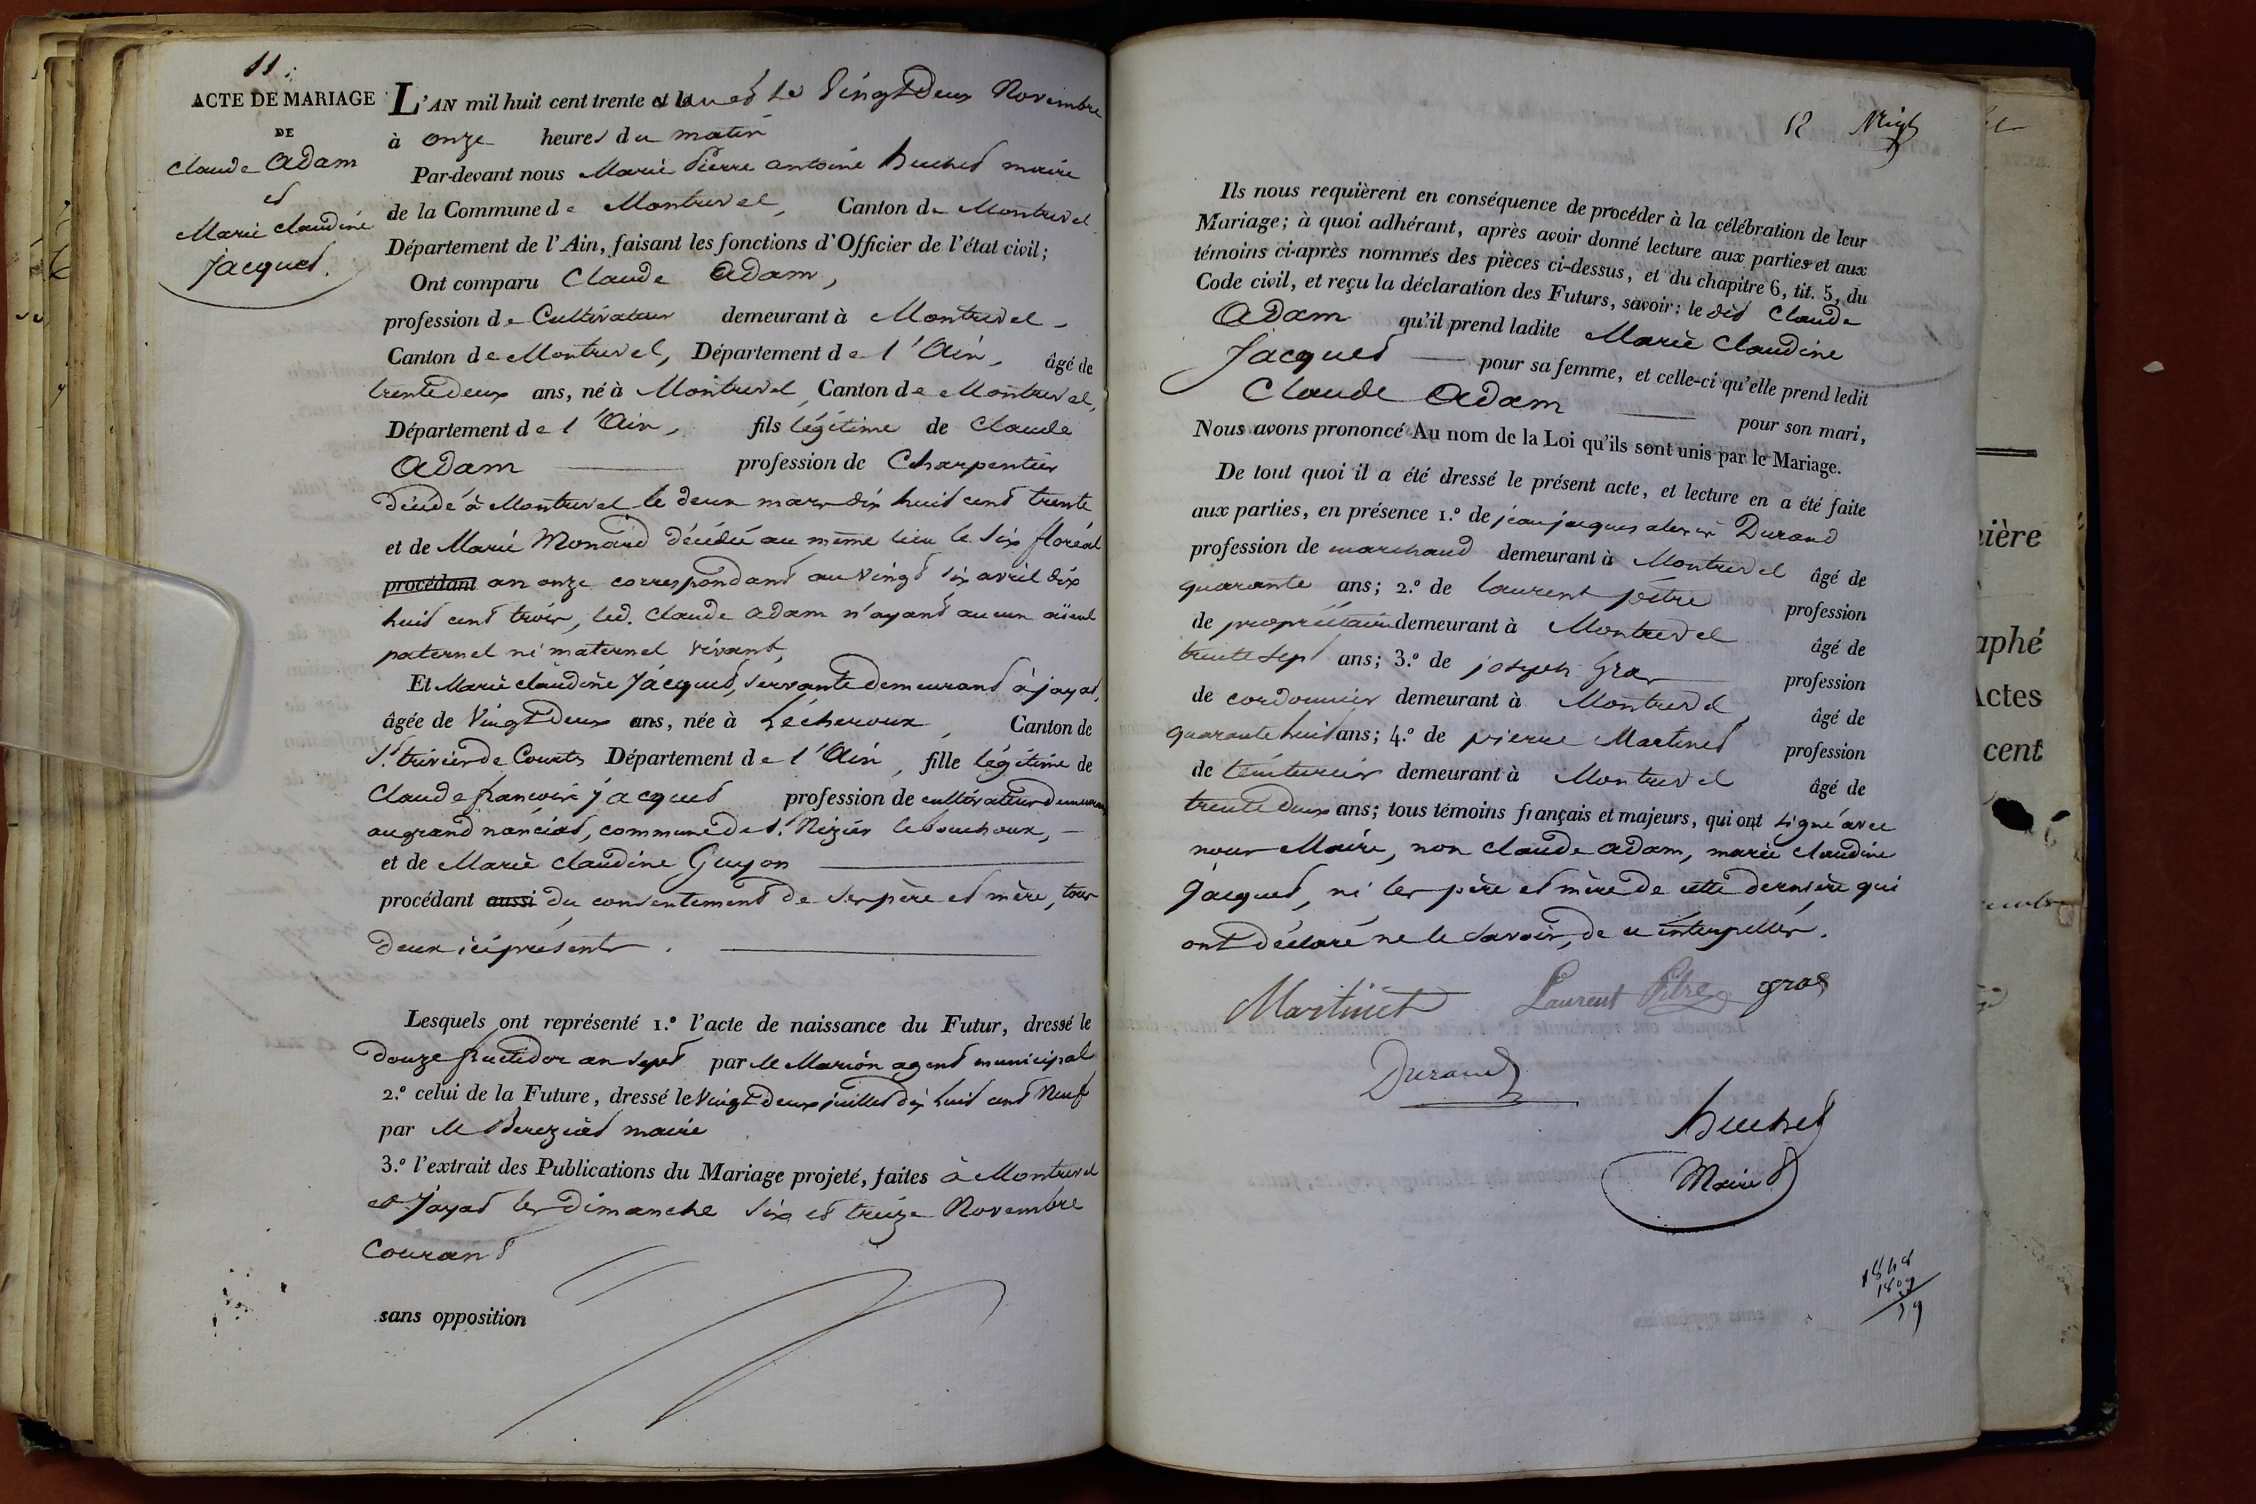 11.
ACTE DE MARIAGE
DE
Claude Adam
et
Marie Claudine
Jacquet.
L'AN mil huit cent trente et un et le Vingt Deux Novembre
à onze heures du matin
Par-devant nous Marie Pierre antoine huchet maire
de la Commune de Montrevel, Canton de Montrevel
Département de l'Ain, faisant les fonctions d'Officier de l'état civil;
Ont comparu Claude Adam,
profession de Cultivateur demeurant à Montrevel,
Canton de Montrevel, Département de l'Ain, âgé de
trente deux ans, né à Montrevel, Canton de Montrevel,
Département de l'Ain, fils légitime de Claude
Adam profession de Charpentier
décédé à Montrevel le deux mars dix huit cent trente
et de Marie Monard décédée au même lieu le six floréal
procédant an onze correspondant au vingt six avril dix
huit cent trois, led. Claude Adam n'ayant aucun aïeul
paternel ni maternel vivant,
Et Marie claudine Jacquet, servante demeurant à jayat,
âgée de Vingt deux ans, née à Lécheroux, Canton de
St. trivier de Courts Département de l'Ain, fille légitime de
Claude françois jacquet profession de cultivateur demeurant
au grand nanciat, commune de St. Nizier le bouchoux,
et de Marie Claudine Guyon
procédant aussi du consentement de ses père et mère, tous
deux ici présents.
Lesquels ont représenté 1.º l'acte de naissance du Futur, dressé le
douze fructidor an sept par M Marion agent municipal
2.º celui de la Future, dressé le Vingt deux juillet dix huit cent Neuf
par M Bereziat maire
3.º l'extrait des Publications du Mariage projeté, faites à Montrevel
et Jayat les Dimanche six et treize Novembre
Courant
sans opposition
12
Ils nous requièrent en conséquence de procéder à la célébration de leur
Mariage; à quoi adhérant, après avoir donné lecture aux parties et aux
témoins ci-après nommés des pièces ci-dessus, et du chapitre 6, tit. 5, du
Code civil, et reçu la déclaration des Futurs, savoir: le dit Claude
Adam qu'il prend ladite Marie Claudine
Jacquet pour sa femme, et celle-ci qu'elle prend ledit
Claude Adam pour son mari,
Nous avons prononcé Au nom de la Loi qu'ils sont unis par le Mariage.
De tout quoi il a été dressé le présent acte, et lecture en a été faite
aux parties, en présence 1.º de jean jacques alexis Durand
profession de marchand demeurant à Montrevel âgé de
quarante ans; 2.º de laurent pitre profession
de propriétaire demeurant à Montrevel âgé de
trente sept ans; 3.º de joseph Gros profession
de cordonnier demeurant à Montrevel, âgé de
quarante huit ans; 4.º de pierre Martinet profession
de teinturier demeurant à Montrevel âgé de
trente deux ans; tous témoins français et majeurs, qui ont signé avec
nous Maire, non claude adam, marie claudine
Jacquet, ni les père et mère de cette dernière qui
ont déclaré ne le savoir, de ce interpellés.
Martinet Laurent Pitre gros
Durand
huchet
Maire
1848
1809
39
ière
aphé
Actes
cent